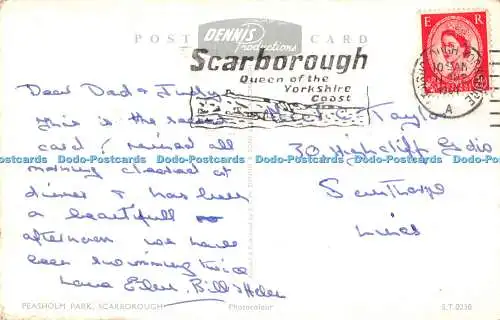 POST CARD
DENNIS
Productions
Scarborough
Queen of the
Yorkshire
Coast
E R
Dear Dad & Judy
This is the second
card, rained all
morning cleared at
dinner & has been
a beautifull
afternoon we have
been swimming twice
Love Eileen, Bill & Helen
Taylor
30 Highcliff Gds
Scunthorpe
Lincs
Dodo-Postcards Dodo-Postcards Dodo-Postcards Dodo-Postcards Dodo-Postcards
PEASHOLM PARK, SCARBOROUGH
Photocolour
S.T. 0238